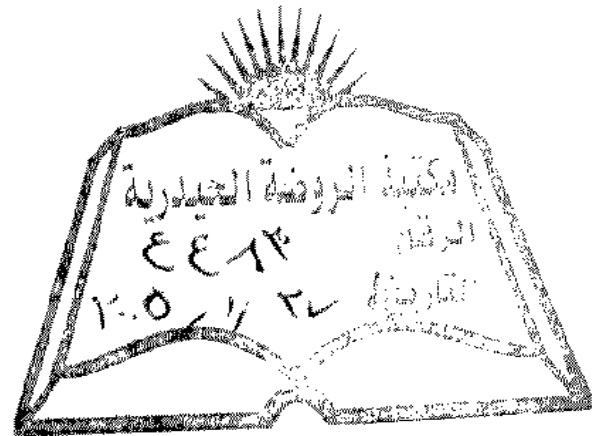 مكتبة الروضة الحيدرية
الرقم ٤٤٨٣
التاريخ ٢٧ / ١ / ٢٠٠٥